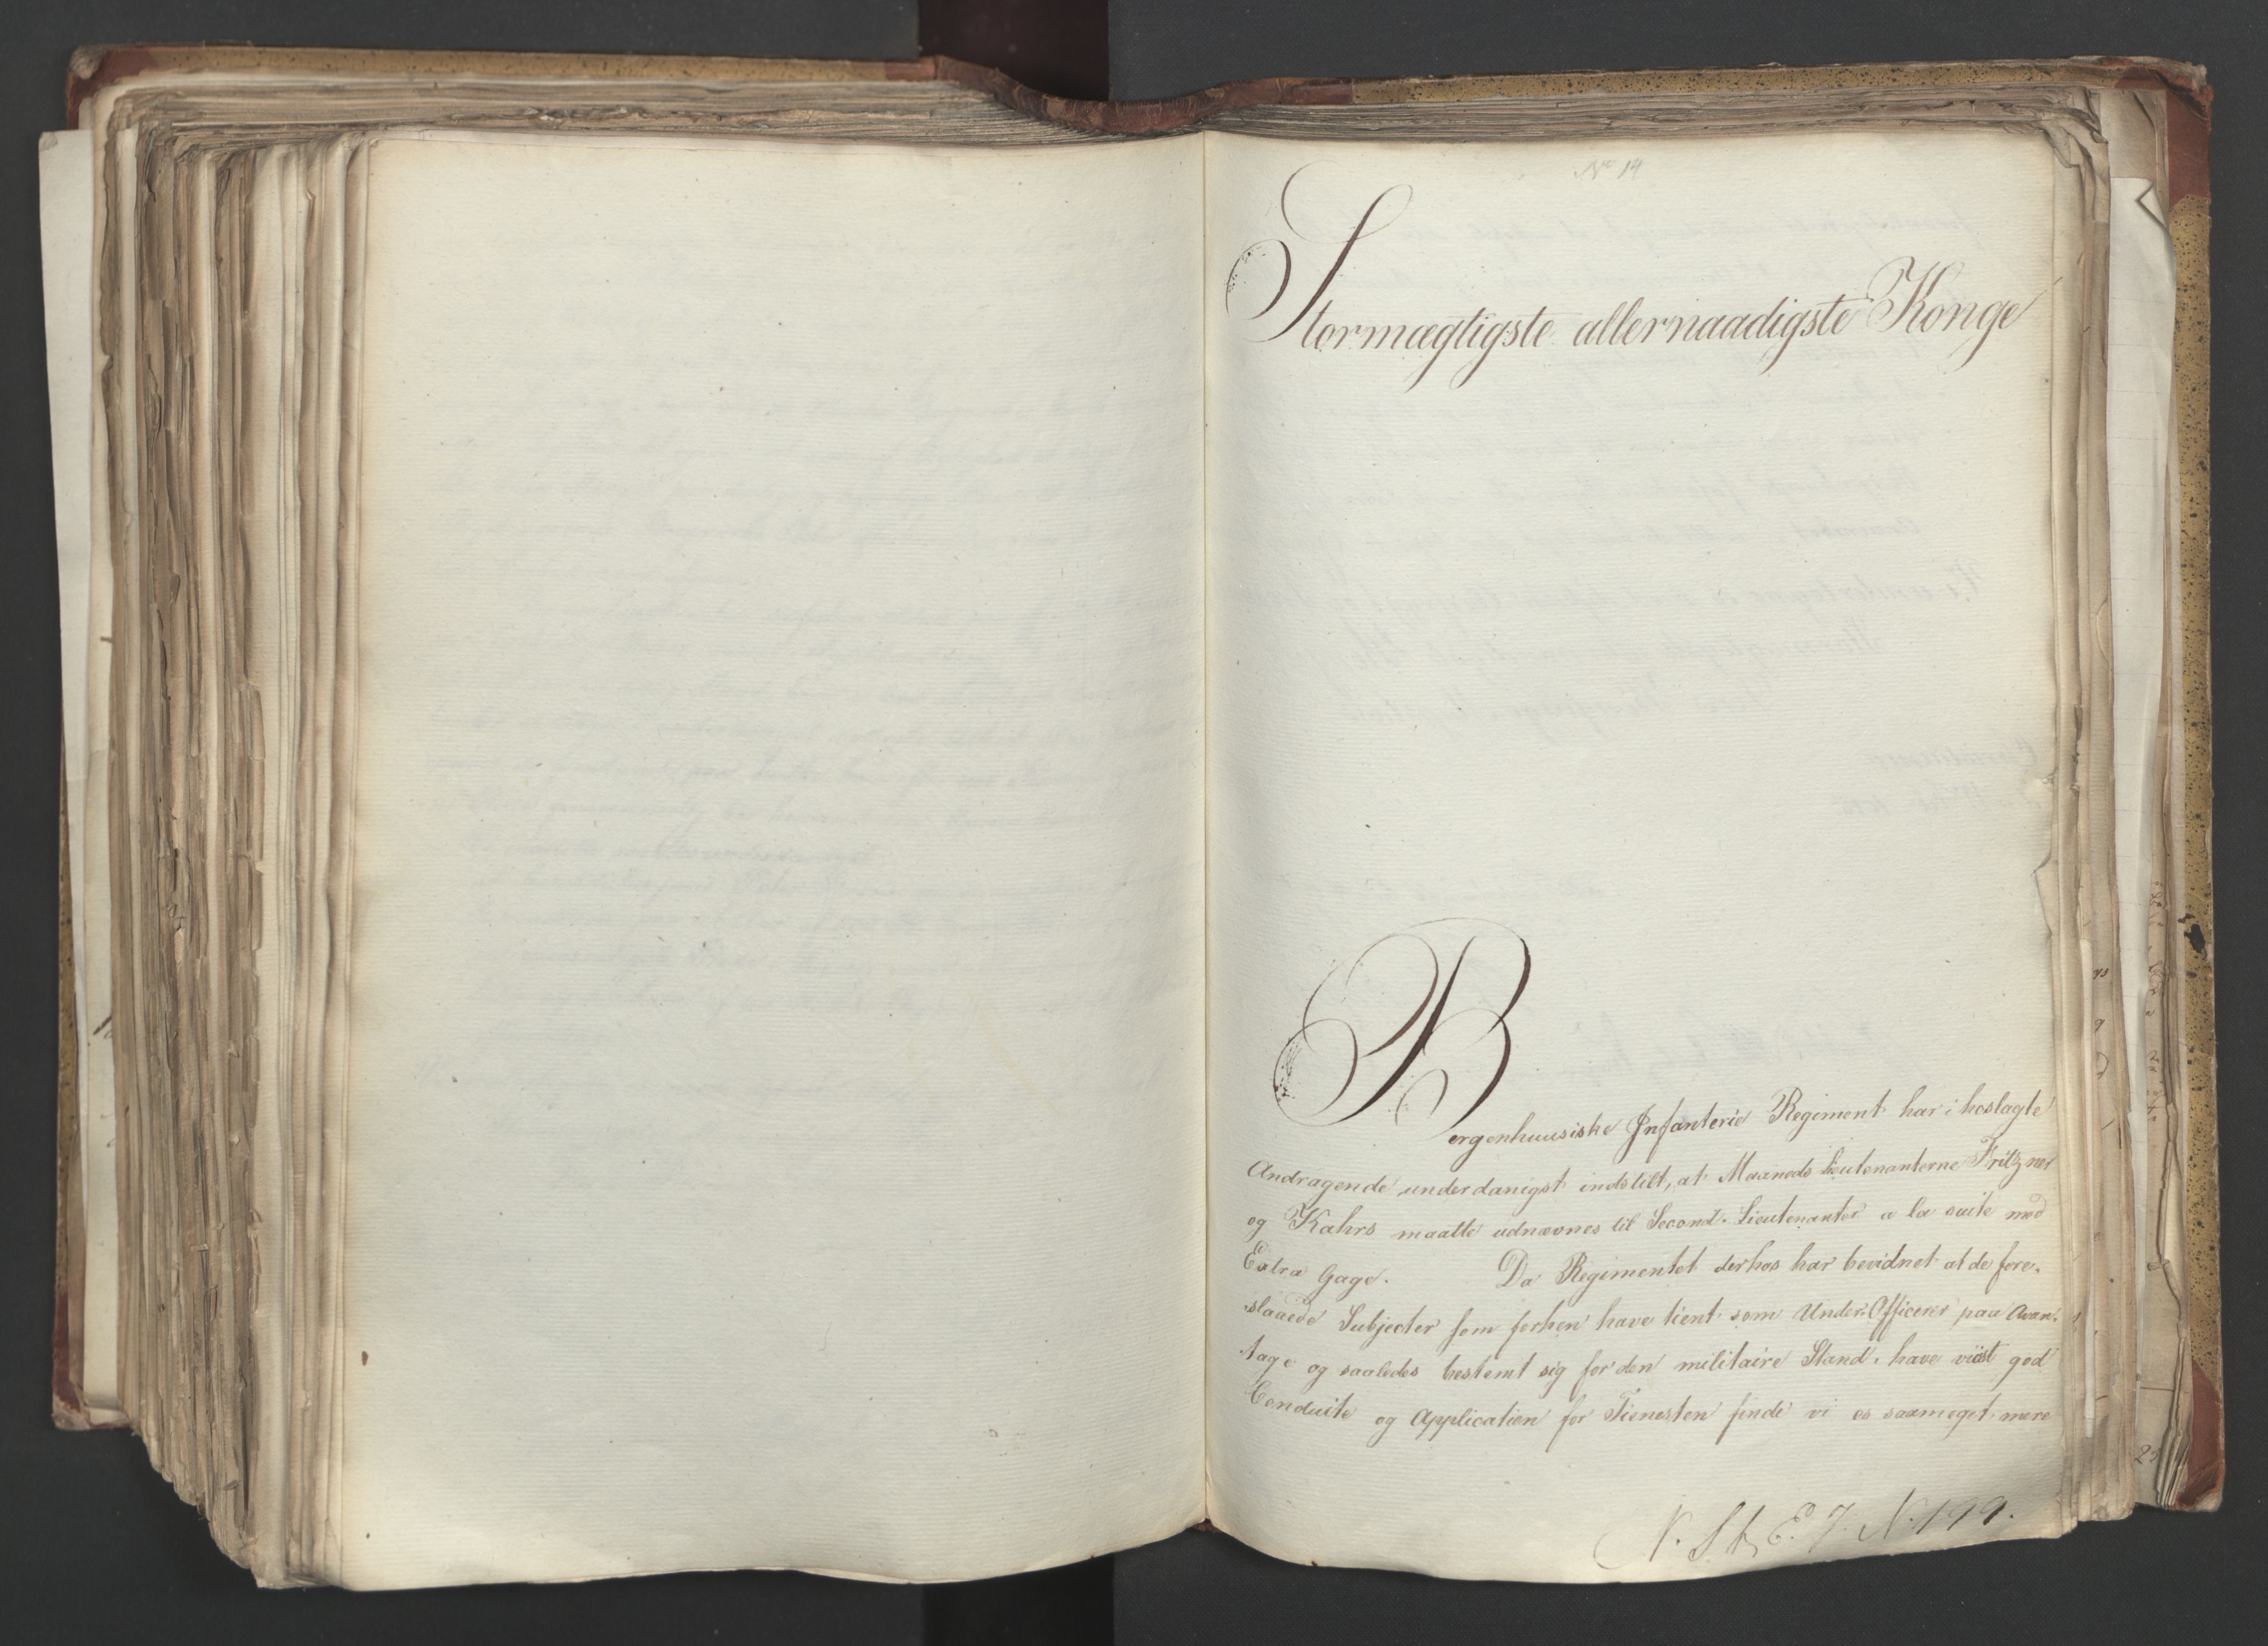 No 14
Stormægtigste allernaadigste Konge
Bergenhuusiske Infanterie Regiment har i hoslagte
Andragende underdanigst indstilt, at Maaneds Lieutenanterne Fritzner
og Kahrs maatte udnævnes til Second-Lieutenanter a la suite med
Extra Gage. Da Regimentet derhos har bevidnet at de fore-
slaaede Subjecter som forhen have tient som Under-Officerer paa Avan-
tage og saaledes bestemt sig for den militaire Stand, have viist god
Conduite og Application for Tienesten finde vi os saameget mere
N. St. E. J. N. 199.